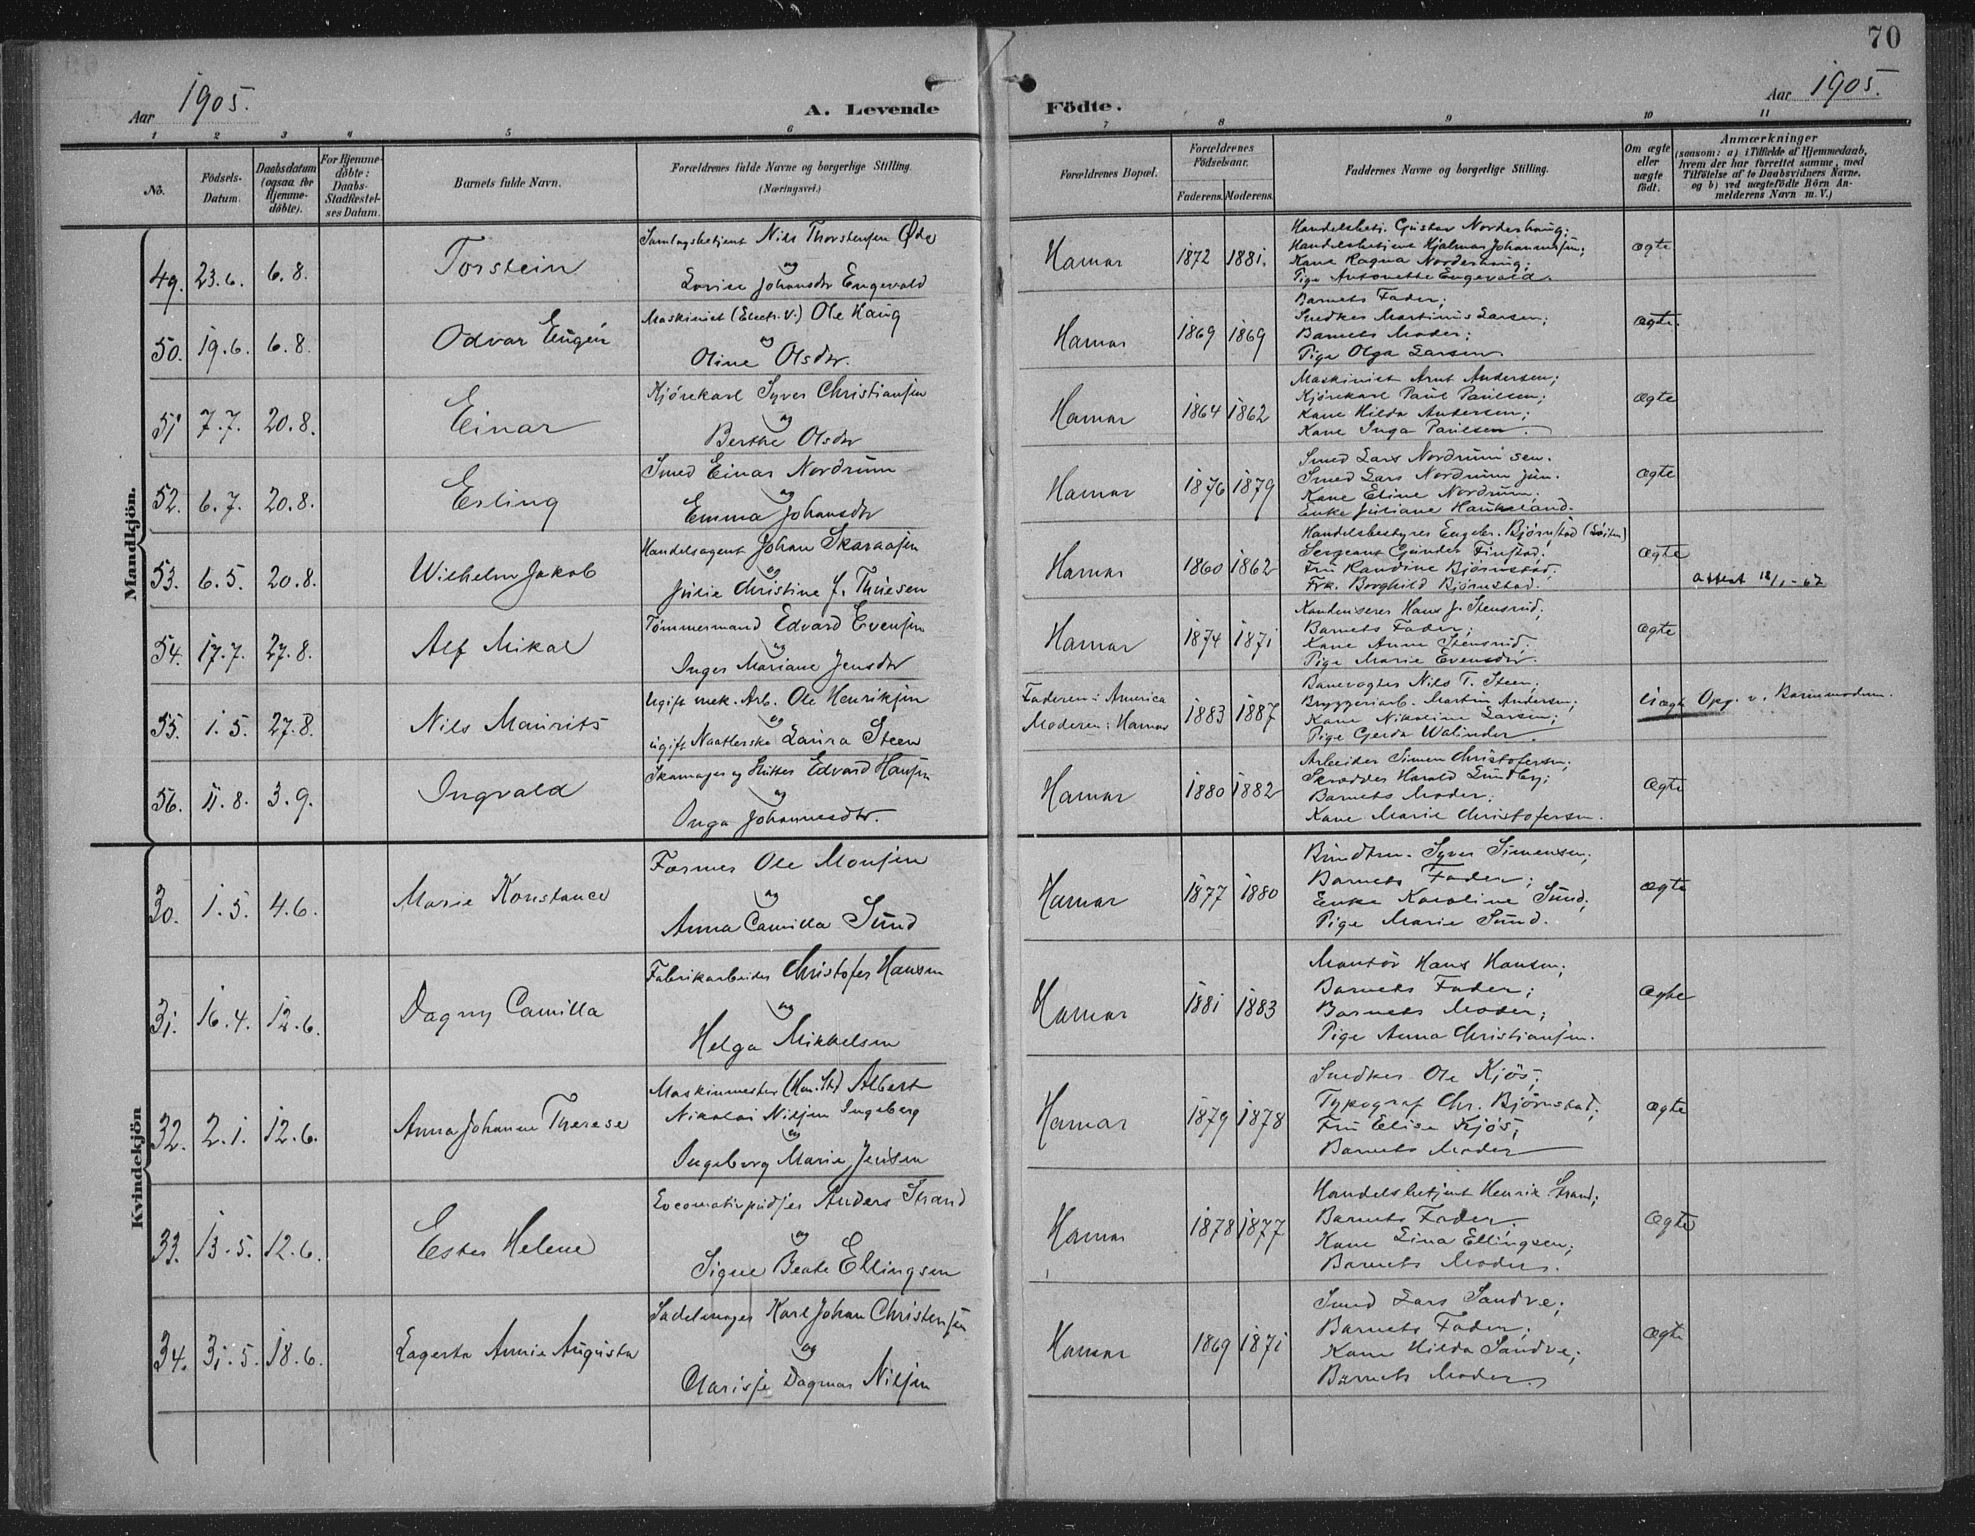 70
Aar 1905.
A. Levende
Födte.
Aar 1905.
1 2 3 4 5 6 7 8 9 10 11
No.
Födsels-Datum.
Daabsdatum (ogsaa for Hjemme-döbte).
For Hjemme-döbte: Daabs-Stadfæstel-ses Datum.
Barnets fulde Navn.
Forældrenes fulde Navne og borgerlige Stilling. (Næringsvei.)
Forældrenes Bopæl.
Forældrenes Födselsaar.
Faderens. Moderens.
Faddernes Navne og borgerlige Stilling.
Om ægte eller uægte födt.
Anmærkninger
(saasom: a) i Tilfælde af Hjemmedaab, hvem der har forrettet samme, med Tilföielse af to Daabsvidners Navne, og b) ved uægtefödte Börn An-melderens Navn m. V.)
Mandkjön.
49. 23.6. 6.8. Torstein
Samlagsbetjent Nils Thorstensen Øde
og
Lovise Johansdtr Engevold
Hamar 1872 1881.
Handelsbetj. Gustav Nordeshaug;
Handelsbetjent Hjalmar Johannesen;
Kane Ragna Nordeshaug;
Pige Antonette Engevold.
ægte
50. 19.6. 6.8. Odvar Eugén
Maskinist (Electr.V.) Ole Haug
og
Oline Olsdtr.
Hamar 1869 1869
Barnets Fader;
Snedker Martinus Larsen;
Barnets Moder;
Pige Olga Larsen
ægte.
51 7.7. 20.8. Einar
Kjørekarl Syver Christiansen
og
Berthe Olsdtr
Hamar 1864 1862
Maskinist Arnt Andersen;
Kjørekarl Paul Paulsen;
Kane Hilda Andersen;
Kane Inga Paulsen.
ægte
52. 6.7. 20.8. Erling
Smed Einar Nordrum
og
Emma Johansdtr
Hamar 1876 1879
Smed Lars Nordrum sen.
Smed Lars Nordrum jun.
Kane Eline Nordrum;
Enke Juliane Haukeland.
ægte
53. 6.5. 20.8. Wilhelm Jakob
Handelsagent Johan Skaraasen
og
Julie Christine J. Thuesen
Hamar 1860 1862
Handelsbestyrer Engebr. Bjørnstad (Løiten)
Sergeant Gunder Finstad.
Fru Randine Bjørnstad;
Frk. Borghild Bjørnstad.
ægte
attest 12/1-62
54. 17.7. 27.8. Alf Mikal
Tømmermand Edvard Evensen
og
Inger Mariane Jensdtr
Hamar 1874 1871
Hans J. Stensrud;
Barnets Fader;
Kane Anne Stensrud;
Pige Marie Evensdtr.
ægte
55. 1.5. 27.8. Nils Maurits
Ugift mek. Arb. Ole Henriksen
og
ugift Naatlerske Laura Steen
Faderen i America
Moderen i Hamar
1883 1887
Banevogter Nils T. Steen;
Bryggeriarb. Martin Andersen;
Kane Nikoline Larsen;
Pige Gerda Walinder.
Uægte Opg. v. Barnemoderen.
56. 11.8. 3.9. Ingvald
Skomager og Hutter Edvard Hansen
og
Inga Johannesdtr.
Hamar 1880 1882
Arbeider Simen Christofersen;
Skrædder Harald Lundby;
Barnets Moder;
Kane Marie Christofersen.
ægte
Kvindekjön
30. 1.5. 4.6. Marie Konstance
Former Ole Monsen
og
Anna Camilla Sund
Hamar 1877 1880
Syver Simensen;
Barnets Fader;
Enke Karoline Sund;
Pige Marie Sund.
ægte
31. 16.4. 12.6. Dagny Camilla
Fabrikarbeider Christofer Hansen
og
Helga Mikkelsen
Hamar 1881 1883
Montør Hans Hansen;
Barnets Fader;
Barnets Moder;
Pige Anna Christiansen.
ægte
32. 2.1. 12.6. Anna Johanne Therese
Maskinmester (Ha. St.) Albert
Nikolai Nilsen Ingeberg
og
Ingeborg Marie Jensen
Hamar 1879 1878
Snedker Ole Kjös;
Typograf Chr. Bjørnstad;
Fru Elise Kjös;
Barnets Moder
ægte
33. 13.5. 12.6. Ester Helene
Locomotivpudser Anders Strand
og
Signe Beate Ellingsen
Hamar 1878 1877
Handelsbetjent Henrik Strand;
Barnets Fader.
Kane Lina Ellingsen;
Barnets Moder.
ægte
34. 31.5. 18.6. Lagerta Annie Augusta
Sadelmager Karl Johan Christensen
og
Clarisse Dagmar Nilsen
Hamar 1869 1871
Smed Lars Sandve;
Barnets Fader;
Kane Hilda Sandve;
Barnets Moder.
ægte